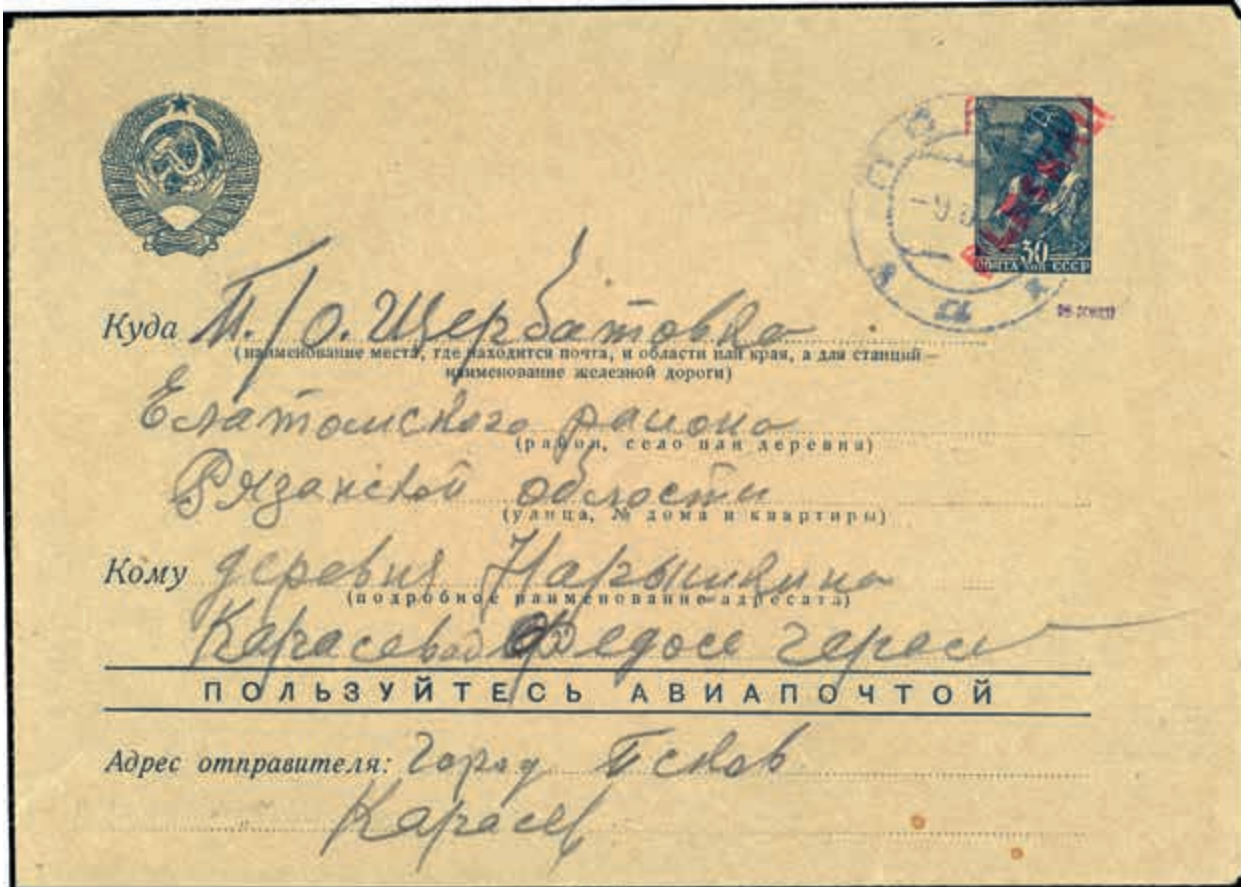 30
ПОЧТА СССР
PLESKAU
Куда П./О. Щербатовка
(наименование места, где находится почта, и области или края, а для станций —
наименование железной дороги)
Елатомского района
(район, село или деревня)
Рязанской области
(улица, № дома и квартиры)
Кому деревня Нарышкина
(подробное наименование адресата)
Федосе Герас
ПОЛЬЗУЙТЕСЬ АВИАПОЧТОЙ
Адрес отправителя: Город Псков
Карасев